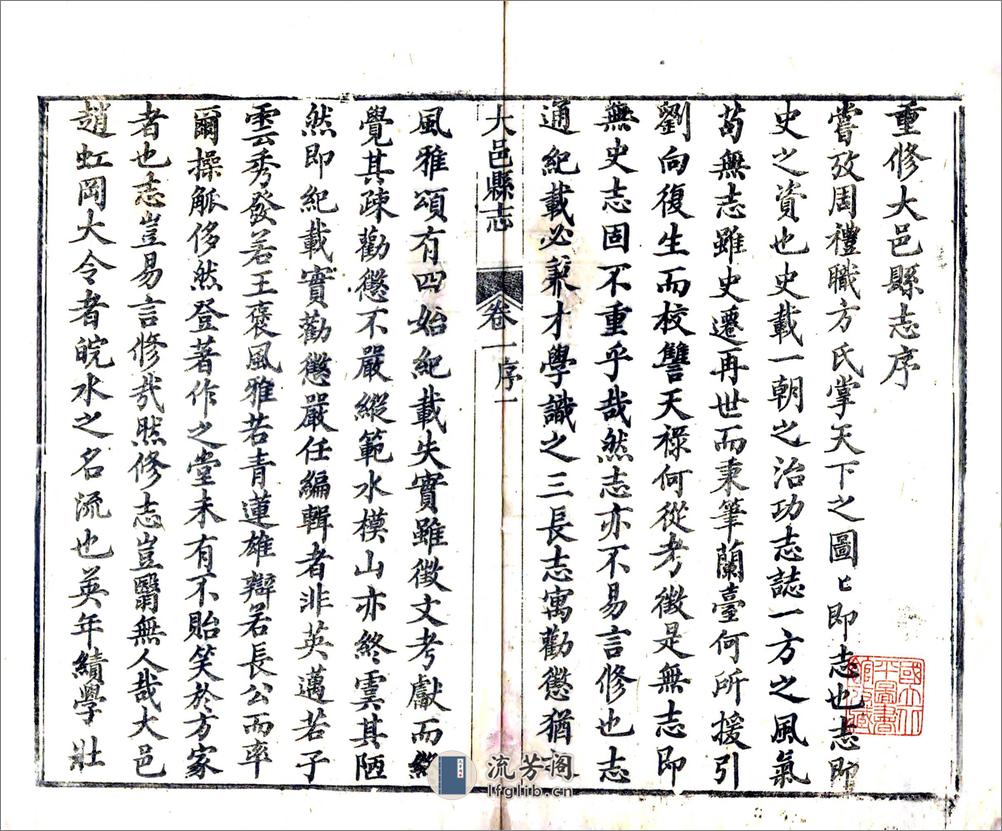 重修大邑縣志序
嘗攷周禮職方氏掌天下之圖〻即志也志即
史之資也史載一朝之治功志誌一方之風氣
苟無志雖史遷再世而秉筆蘭臺何所援引
劉向復生而校讐天祿何從考徵是無志即
無史志固不重乎哉然志亦不易言修也志
通紀載必兼才學識之三長志寓勸懲猶
大邑縣志 卷一序 一
風雅頌有四始紀載失實雖徵文考獻而
覺其疎勸懲不嚴縱範水模山亦終虞其陋
然即紀載實勸懲嚴任編輯者非英邁若子
雲秀發若王褒風雅若青蓮雄辯若長公而率
爾操觚侈然登著作之堂未有不貽笑於方家
者也志豈易言修哉然修志豈翳無人哉大邑
趙虹岡大令者皖水之名流也英年績學壯
國立北
平圖書
館收藏
流芳閣
lfglib.cn